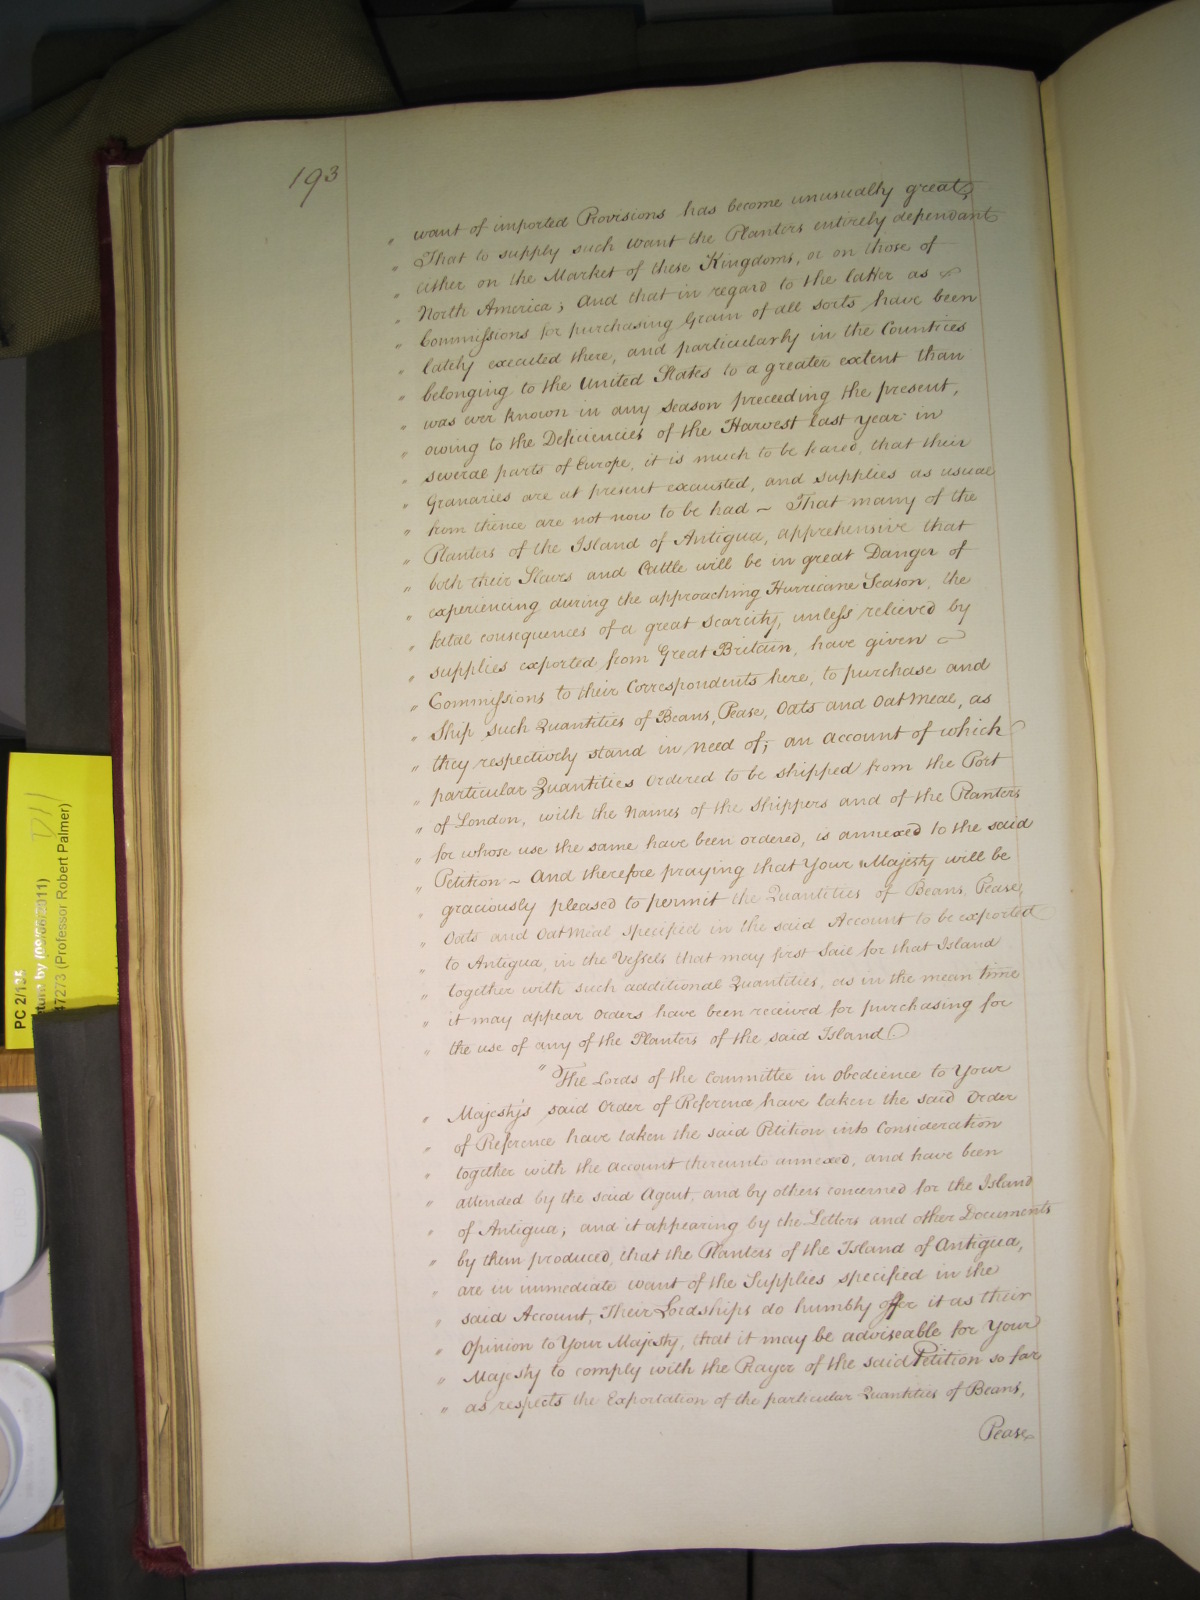 193
" want of imported Provisions has become unusually great,
" That to supply such want the Planters entirely dependant
" either on the Market of these Kingdoms, or on those of
" North America; And that in regard to the latter as
" Commissions for purchasing Grain of all sorts have been
" lately executed there, and particularly in the Countries
" belonging to the United States to a greater extent than
" was ever known in any season preceeding the present,
" owing to the Deficiencies of the Harvest last year in
" several parts of Europe, it is much to be feared, that their
" Granaries are at present exausted, and supplies as usual
" from thence are not now to be had ~ That many of the
" Planters of the Island of Antigua, apprehensive that
" both their Slaves and Cattle will be in great Danger of
" experiencing during the approaching Hurricane Season, the
" fatal consequences of a great scarcity, unless relieved by
" supplies exported from Great Britain, have given
" Commissions to their Correspondents here, to purchase and
" Ship such Quantities of Beans, Pease, Oats and Oat Meal, as
" they respectively stand in need of; an Account of which
" particular Quantities ordered to be shipped from the Port
" of London, with the Names of the Shippers and of the Planters
" for whose use the same have been ordered, is annexed to the said
" Petition ~ And therefore praying that Your Majesty will be
" graciously pleased to permit the Quantities of Beans, Pease,
" Oats and Oat Meal specified in the said Account to be exported
" to Antigua, in the Vessels that may first Sail for that Island
" together with such additional Quantities, as in the mean time
" it may appear Orders have been received for purchasing for
" the use of any of the Planters of the said Island
" The Lords of the Committee in Obedience to Your
" Majesty's said Order of Reference have taken the said Order
" of Reference have taken the said Petition into Consideration
" together with the Account thereunto annexed, and have been
" attended by the said Agent, and by others concerned for the Island
" of Antigua; and it appearing by the Letters and other Documents
" by them produced, that the Planters of the Island of Antigua,
" are in immediate want of the Supplies specified in the
" said Account, Their Lordships do humbly offer it as their
" Opinion to Your Majesty, that it may be adviseable for Your
" Majesty to comply with the Prayer of the said Petition so far
" as respects the Exportation of the particular Quantities of Beans,
Pease
PC 2/135
(09/06/2011)
47273 (Professor Robert Palmer)